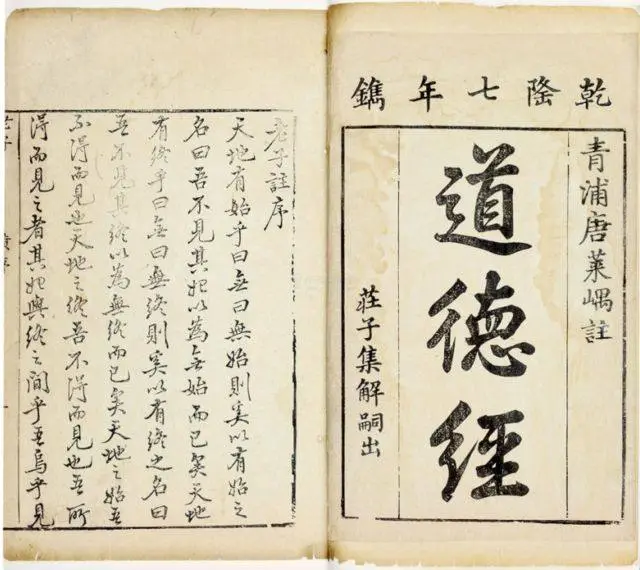 乾隆七年鐫
青浦唐萊峿註
道德經
莊子集解嗣出
老子註序
天地有始乎曰無曰無始則奚以有始之
名曰吾不見其始以為無始而已矣天地
有終乎曰無曰無終則奚以有終之名曰
吾不見其終以為無終而已矣天地之始吾
不得而見也天地之終吾不得而見也吾所
得而見之者其始與終之間乎吾烏乎見